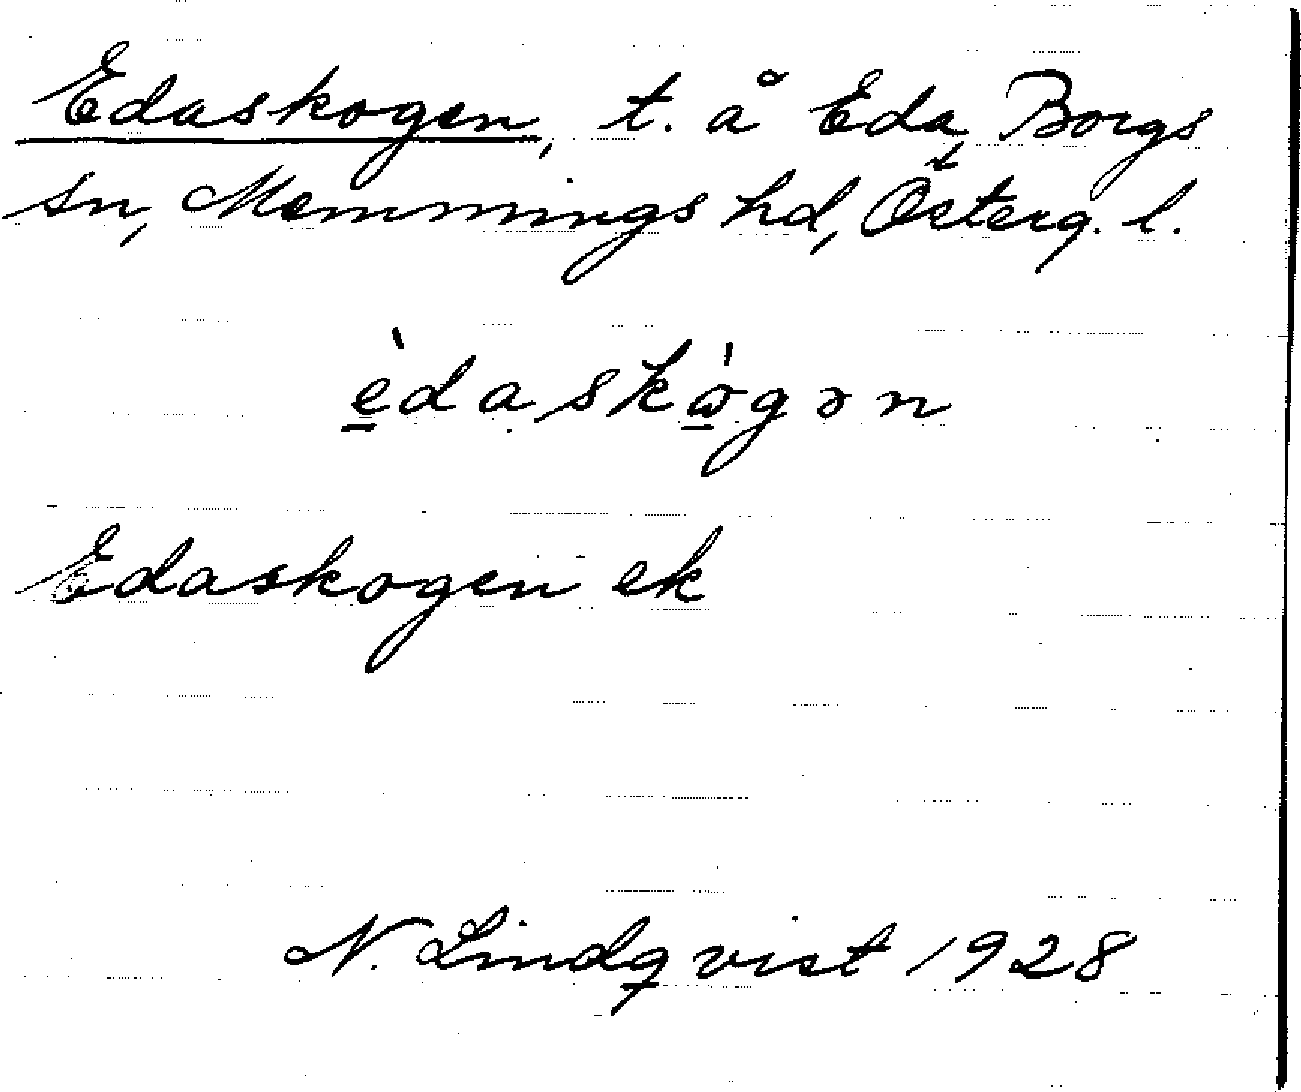 Edaskogen, t. å Eda, Borgs
sn, Memmings hd, Österg. l.
è̱daskɷ̱̀gən
Edaskogen ek
N. Lindqvist 1928